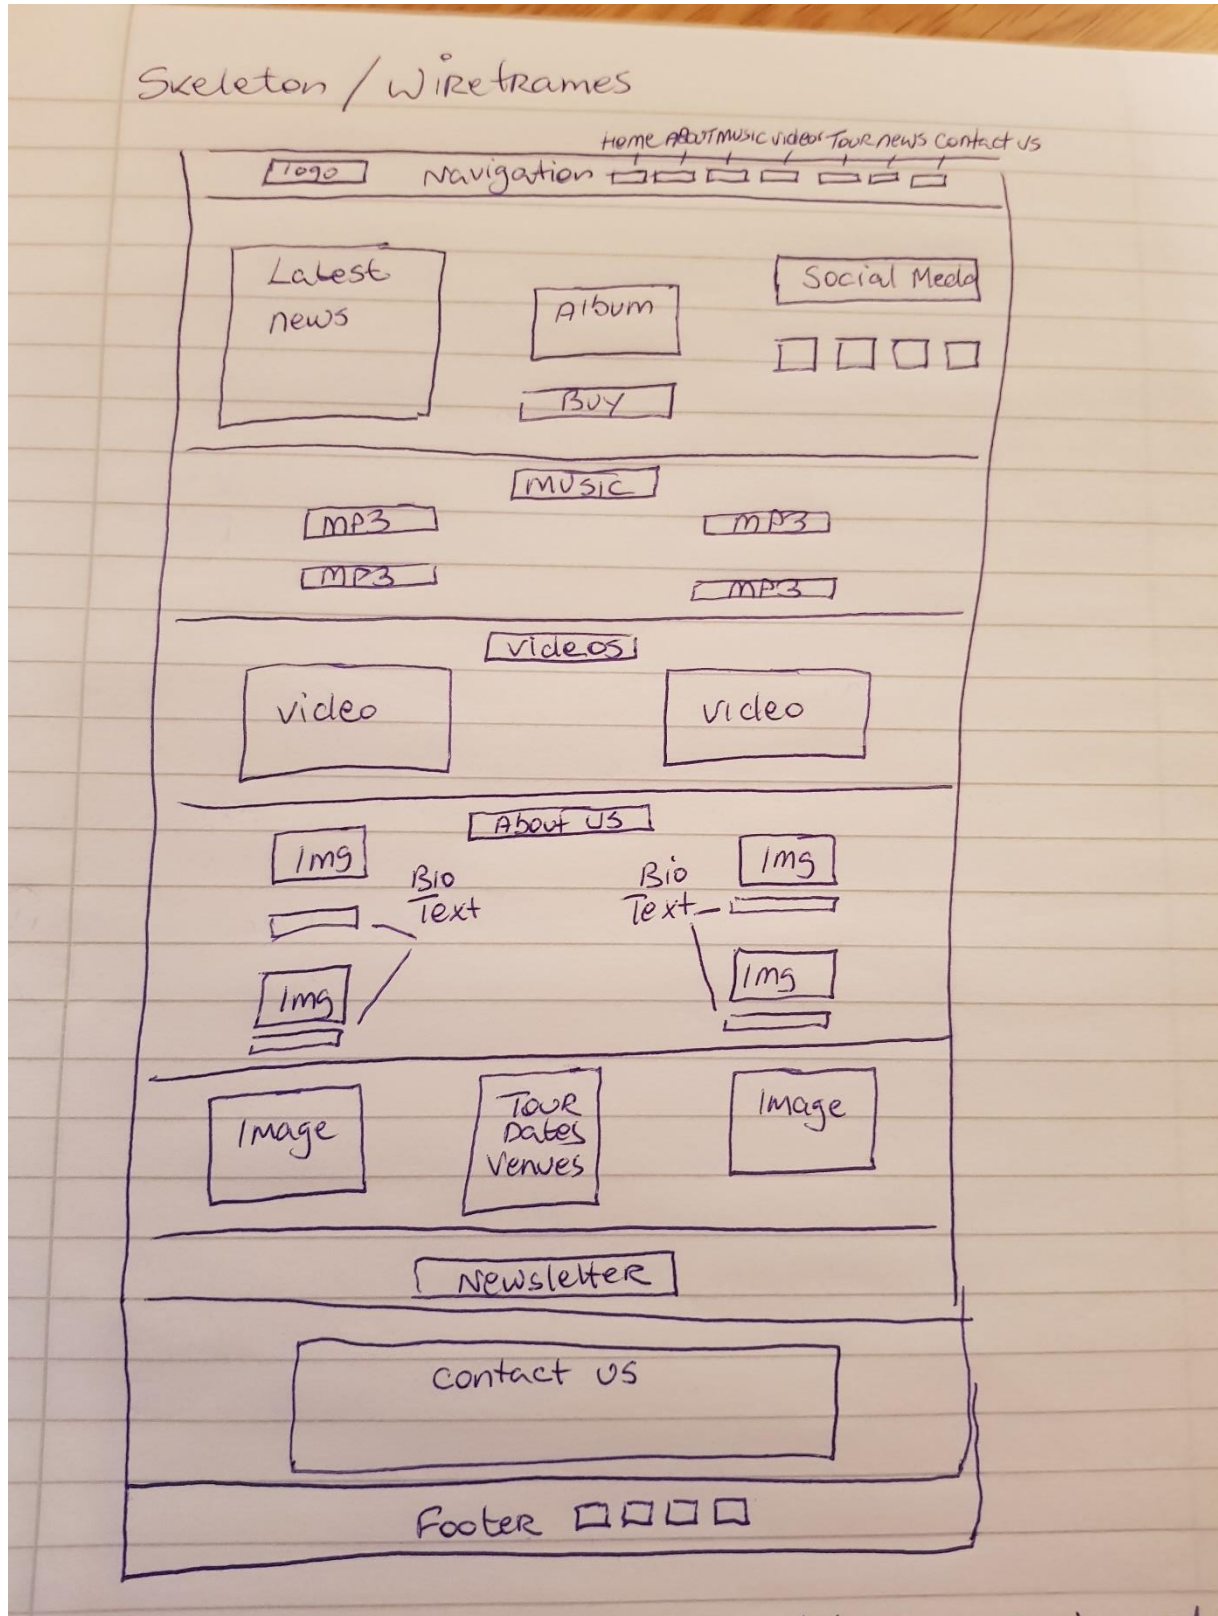 Skeleton / Wireframes
Home About Music Videos Tour news Contact us
logo Navigation
Latest
news
Album
Buy
Social Meda
Music
MP3 MP3
MP3 MP3
Videos
video video
About us
Img Img
Bio
Text
Bio
Text
Img Img
Image
Tour
Dates
Venues
Image
Newsletter
Contact us
Footer